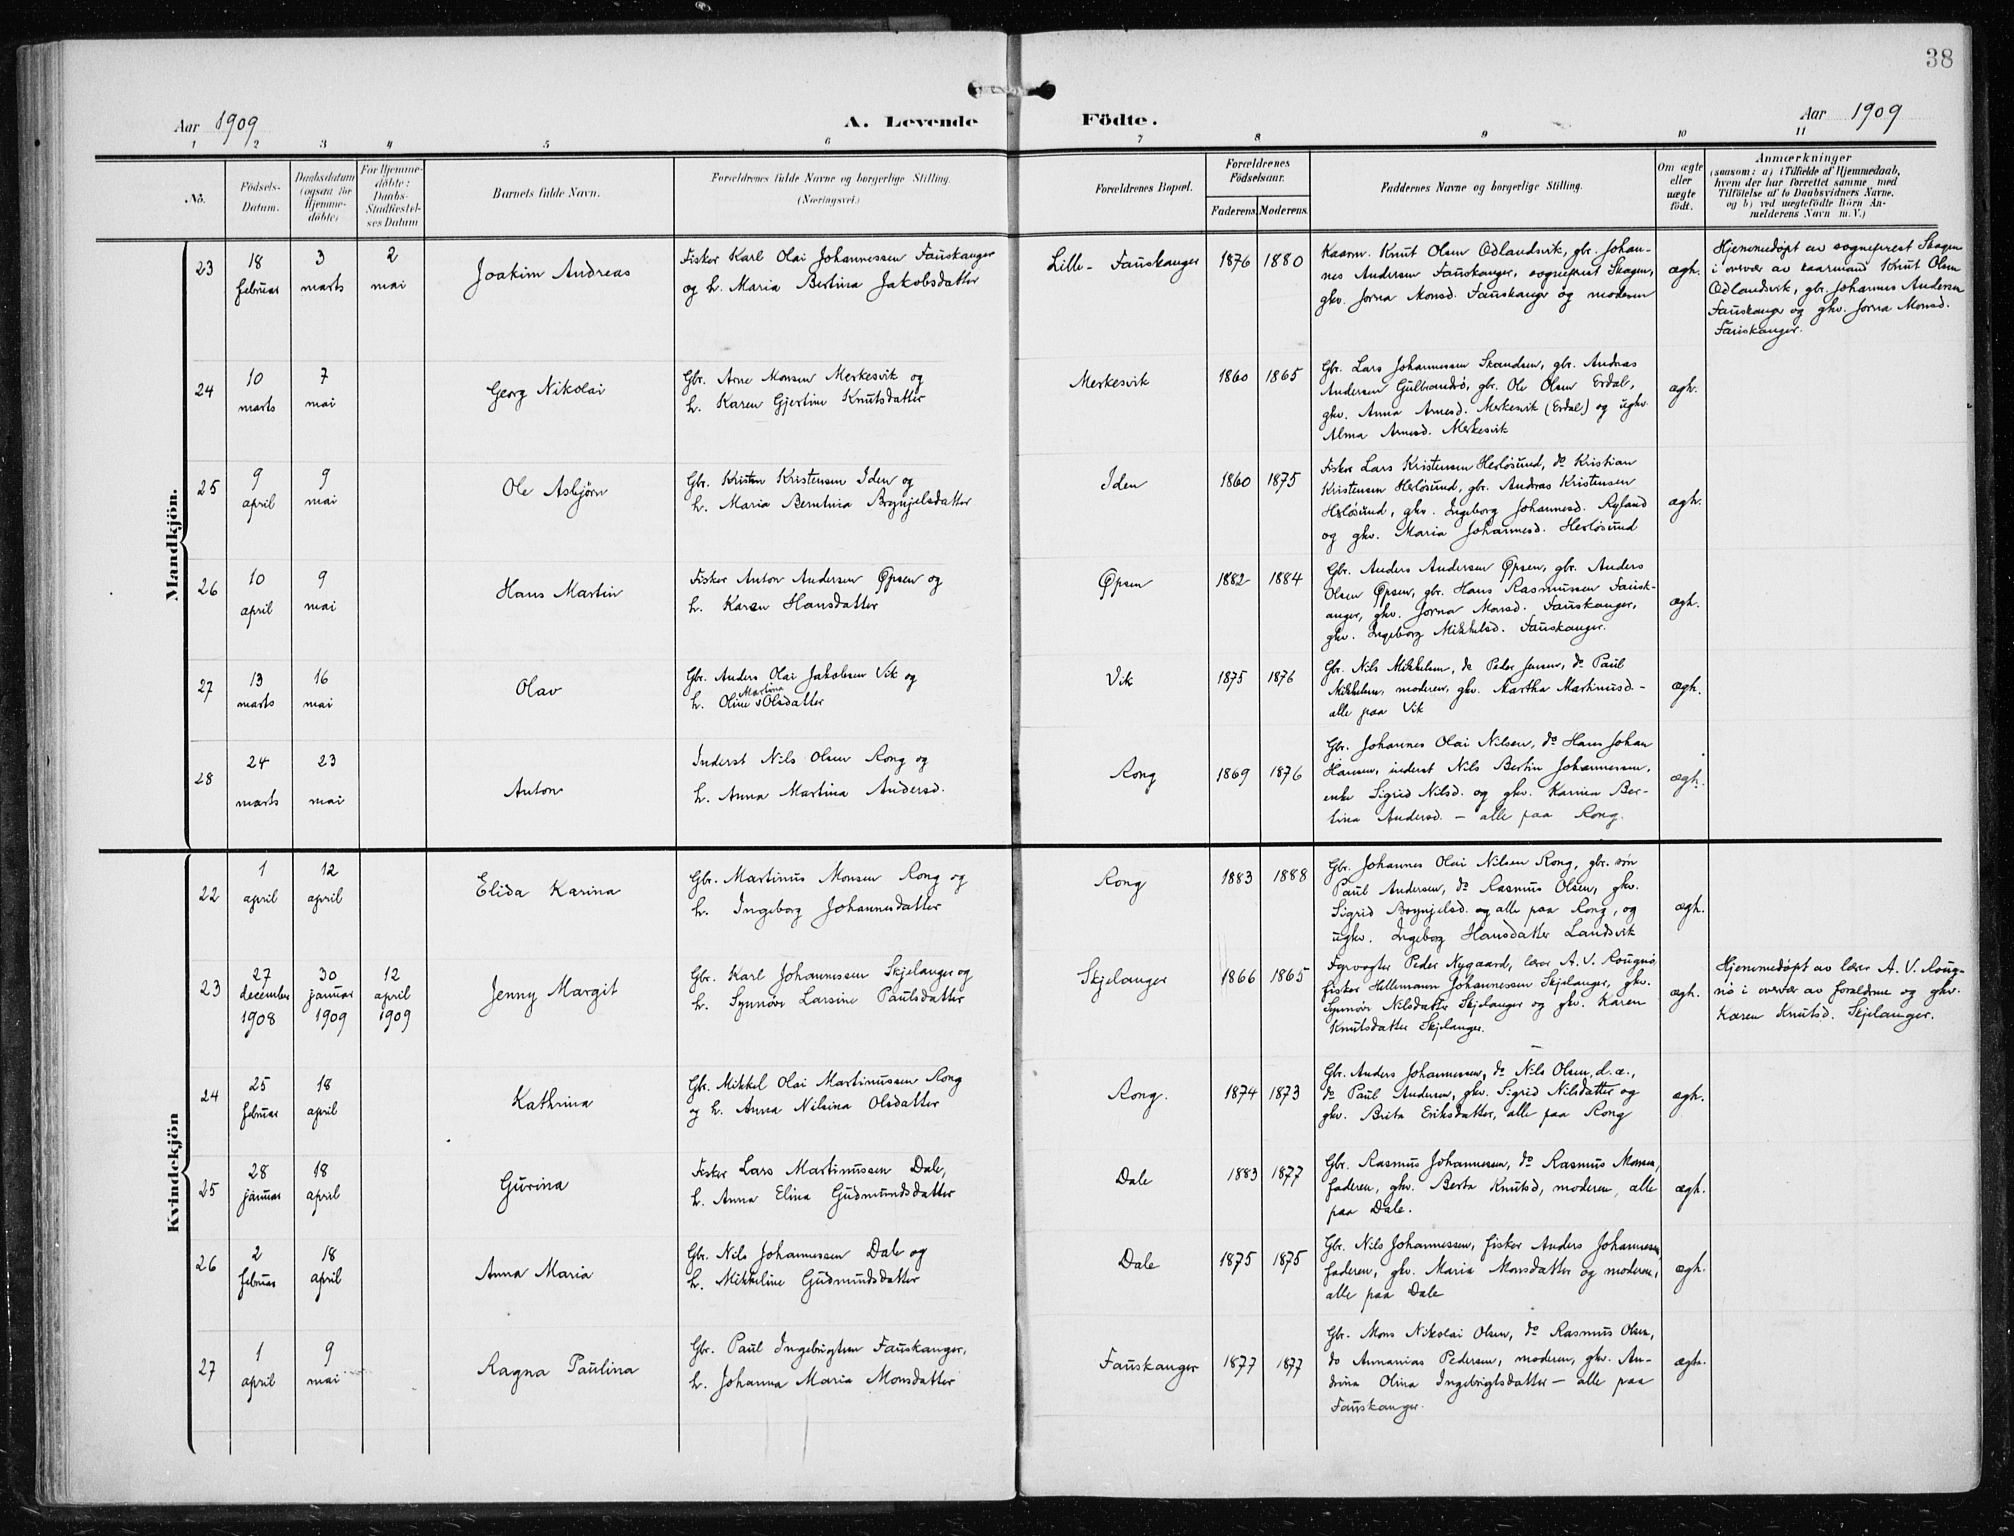 38
Aar 1909
A. Levende
Födte.
Aar 1909
1 2 3 4 5 6 7 8 9 10 11
No.
Födsels-
Datum.
Daabsdatum
(ogsaa for
Hjemme-
döbte)
For Hjemme-
döbte:
Daabs-
Stadfæstel-
ses Datum
Barnets fulde Navn.
Forældrenes fulde Navne og borgerlige Stilling.
(Næringsvei.)
Forældrenes Bopæl.
Forældrenes
Födselsaar.
Faderens. Moderens.
Faddernes Navne og borgerlige Stilling.
Om ægte
eller
uægte
födt.
Anmærkninger
(saasom: a) i Tilfælde af Hjemmedaab,
hvem der har forrettet samme med
Tilföielse af to Daabsvidners Navne.
og b) ved uægtefödte Börn An-
melderens Navn m. V.)
Mandkjön.
23
18
februar
3
marts
2
mai
Joakim Andreas
Fisker Karl Olai Johannessen Fauskanger
og h. Maria Bertina Jakobsdatter
Lille-Fauskanger
1876 1880
Kaarm. Knut Olsen Odlandsvik, gbr. Johan-
nes Andersen Fauskanger, sogneprest Skagen,
gkv. Jorna Monsd. Fauskanger og moderen
ægh.
Hjemmedøpt av sogneprest Skagen
i overvær av kaarmand Knut Olsen
Odlandsvik, gbr. Johannes Andersen
Fauskanger og gkv. Jorna Monsd.
Fauskanger.
24
10
marts
7
mai
Georg Nikolai
Gbr. Arne Monsen Merkesvik og
h. Karen Gjertine Knutsdatter
Merkesvik
1860 1865
Gbr. Lars Johannessen Skandsen, gbr. Andreas
Andersen Gulbrandsö, gbr. Ole Olsen Erdal,
gkv. Anna Arnesd. Merkesvik (Erdal) og ugkv.
Alma Arnesd. Merkesvik
ægh.
25
9
april
9
mai
Ole Asbjørn
Gbr. Kristen Kristensen Iden og
h. Maria Berntina Brynjelsdatter
Iden
1860 1875
Fisker Lars Kristensen Herløsund, do Kristian
Kristensen Herløsund, gbr. Andreas Kristensen
Herløsund, gkv. Ingeborg Johannesd. Ryland
og gkv. Maria Johannesd. Herløsund
ægh.
26
10
april
9
mai
Hans Martin
Fisker Anton Andersen Øpsen og
h. Karen Hansdatter
Øpsen
1882 1884
Gbr. Anders Andersen Øpsen, gbr. Anders
Olsen Øpsen, gbr. Hans Rasmussen Fausk-
anger, gkv. Jorna Monsd. Fauskanger,
gkv. Ingeborg Mikkelsd. Fauskanger.
ægh.
27
13
marts
16
mai
Olav
Gbr. Anders Olai Jakobsen Vik og
Martina
h. Oline Olsdatter
Vik
1875 1876
Gbr. Nils Mikkelsen, do Peder Jensen, do Paul
Mikkelsen, moderen, gkv. Martha Martinusd. -
alle paa Vik
ægh.
28
24
marts
23
mai
Anton
Inderst Nils Olsen Rong og
h. Anna Martina Andersd.
Rong
1869 1876
Gbr. Johannes Olai Nilsen, do Hans Johan
Hansen, inderst Nils Bertin Johannessen,
enke Sigrid Nilsd. og gkv. Karina Ber-
tina Andersd. - alle paa Rong.
ægh.
Kvindekjön
22
1
april
12
april
Elida Karina
Gbr. Martinus Monsen Rong og
h. Ingeborg Johannesdatter
Rong
1883 1888
Gbr. Johannes Olai Nilsen Rong, gbr. søn
Paul Andersen, do Rasmus Olsen, gkv.
Sigrid Brynjelsd. og alle paa Rong, og
ugkv. Ingeborg Hansdatter Landsvik
ægh.
23
27
december
1908
30
januar
1909
12
april
1909
Jenny Margit
Gbr. Karl Johannessen Skjelanger og
h. Synnøve Larsine Paulsdatter
Skjelanger
1866 1865
Fyrvogter Peder Nygaard, lærer A. V. Rougnø,
fisker Hellemann Johannessen Skjelanger, gkv.
Synnøve Nilsdatter Skjelanger og gkv. Karen
Knutsdatter Skjelanger.
ægh.
Hjemmedøpt av lærer A. V. Roug-
nø i overvær av forældrene og gkv.
Karen Knutsd. Skjelanger.
24
25
februar
18
april
Kathrina
Gbr. Mikkel Olai Martinussen Rong
og h. Anna Nilsina Olsdatter
Rong.
1874 1873
Gbr. Anders Johannessen, do Nils Olsen, d.æ.,
do Paul Andersen, gkv. Sigrid Nilsdatter og
gkv. Brita Eriksdatter, alle paa Rong
ægh.
25
28
januar
18
april
Gurina
Fisker Lars Martinussen Dale,
h. Anna Elina Gudmundsdatter
Dale
1883 1877
Gbr. Rasmus Johannessen, do Rasmus Monsen,
faderen, gkv. Berta Knutsd, moderen, alle
paa Dale.
ægh.
26
2
februar
18
april
Anna Maria
Gbr. Nils Johannessen Dale og
h. Mikkeline Gudmundsdatter
Dale
1875 1875
Gbr. Nils Johannessen, fisker Anders Johannessen
faderen, gkv. Maria Monsdatter og moderen,
alle paa Dale
ægh.
27
1
april
9
mai
Ragna Paulina
Gbr. Paul Ingebrigtsen Fauskanger,
h. Johanna Maria Monsdatter
Fauskanger
1877 1877
Gbr. Mons Nikolai Olsen, do Rasmus Olsen,
do Annanias Pedersen, moderen, gkv. An-
drina Olina Ingebrigtsdatter - alle paa
Fauskanger.
ægh.